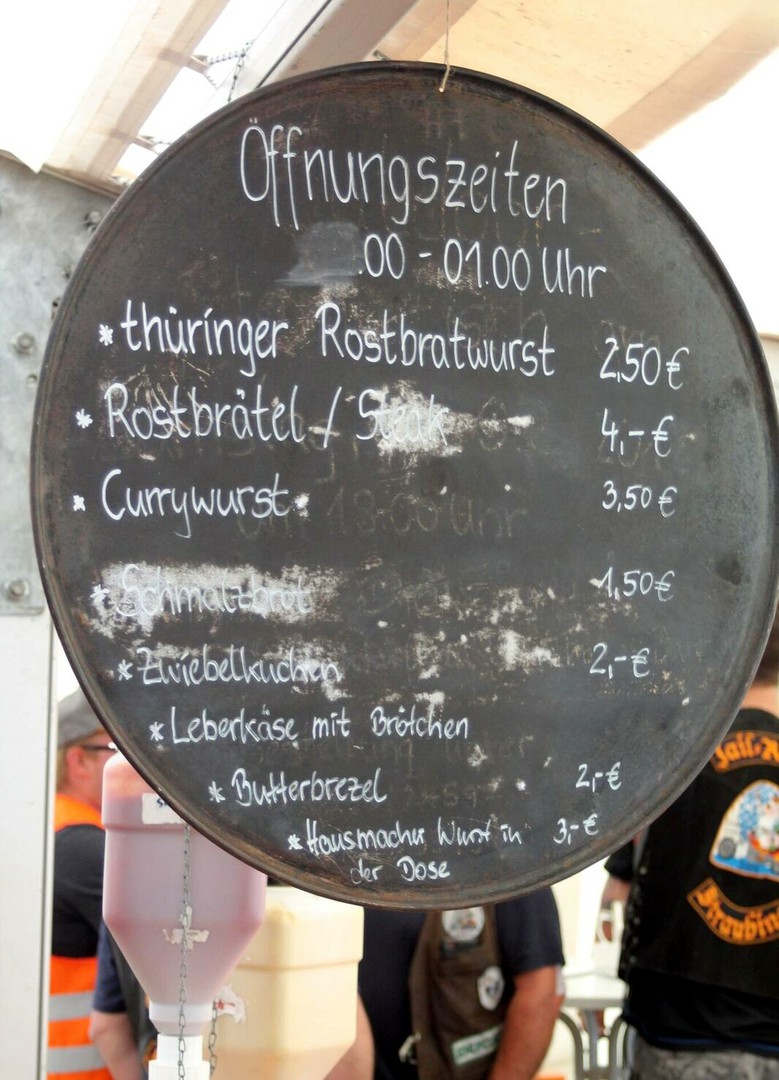 Öffnungszeiten
.00 - 01.00 Uhr
* thüringer Rostbratwurst 2,50 €
* Rostbrätel / Steak 4,- €
* Currywurst 3,50 €
* Schmalzbrot 1,50 €
* Zwiebelkuchen 2,- €
* Leberkäse mit Brötchen
* Butterbrezel 2,- €
* Hausmacher Wurst in 3,- €
der Dose